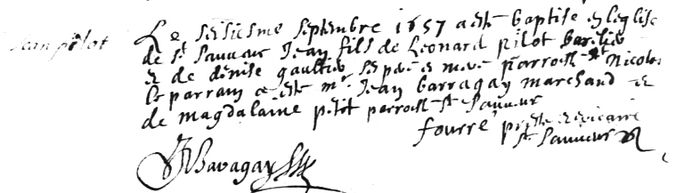 Jean pilot
Le sesiesme septembre 1657 a este baptise en leglise
de st Sauveur Jean fils de Leonard pilot
et de denise gaultier ses pere et mere parroisse st Nicolas
le parrain a este mr Jean Barragay marchand et
de magdalaine petit parroisse st Sauveur
fourré prestre et vicaire
st Sauveur
JBaragay